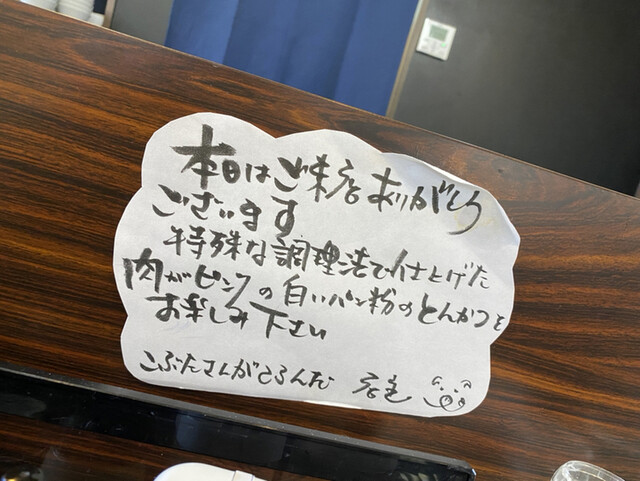 本日はご来店ありがとう
ございます
特殊な調理法で仕上げた
肉がピンクの白いパン粉のとんかつを
お楽しみ下さい
こぶたさんがころんだ 店主